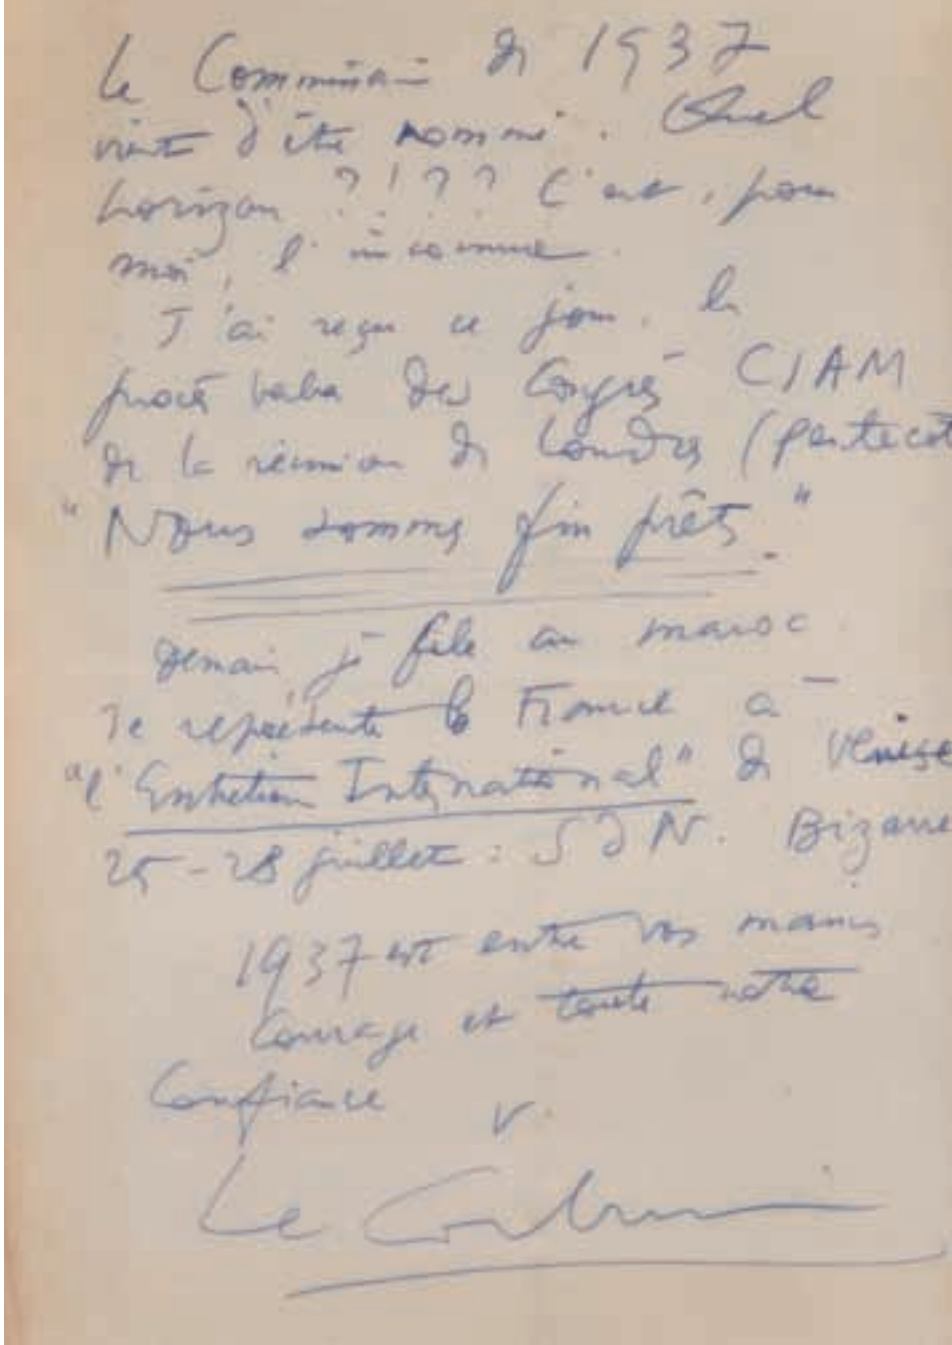 Le Commissaire de 1937
vient d'être nommé. Quel
horizon ? ! ? ? C'est, pour
moi, l'inconnue.
J'ai reçu ce jour, le
procès verbal des Congrès CIAM
de la réunion de Londres (pentecôt
"Nous sommes fin prêts."
Demain, je file au maroc.
Je représente la France à
"l'Entretien International" de Venise
25-28 juillet : SDN. Bizarre
1937 est entre vos mains
Courage et toute notre
Confiance v.
Le Corbusier